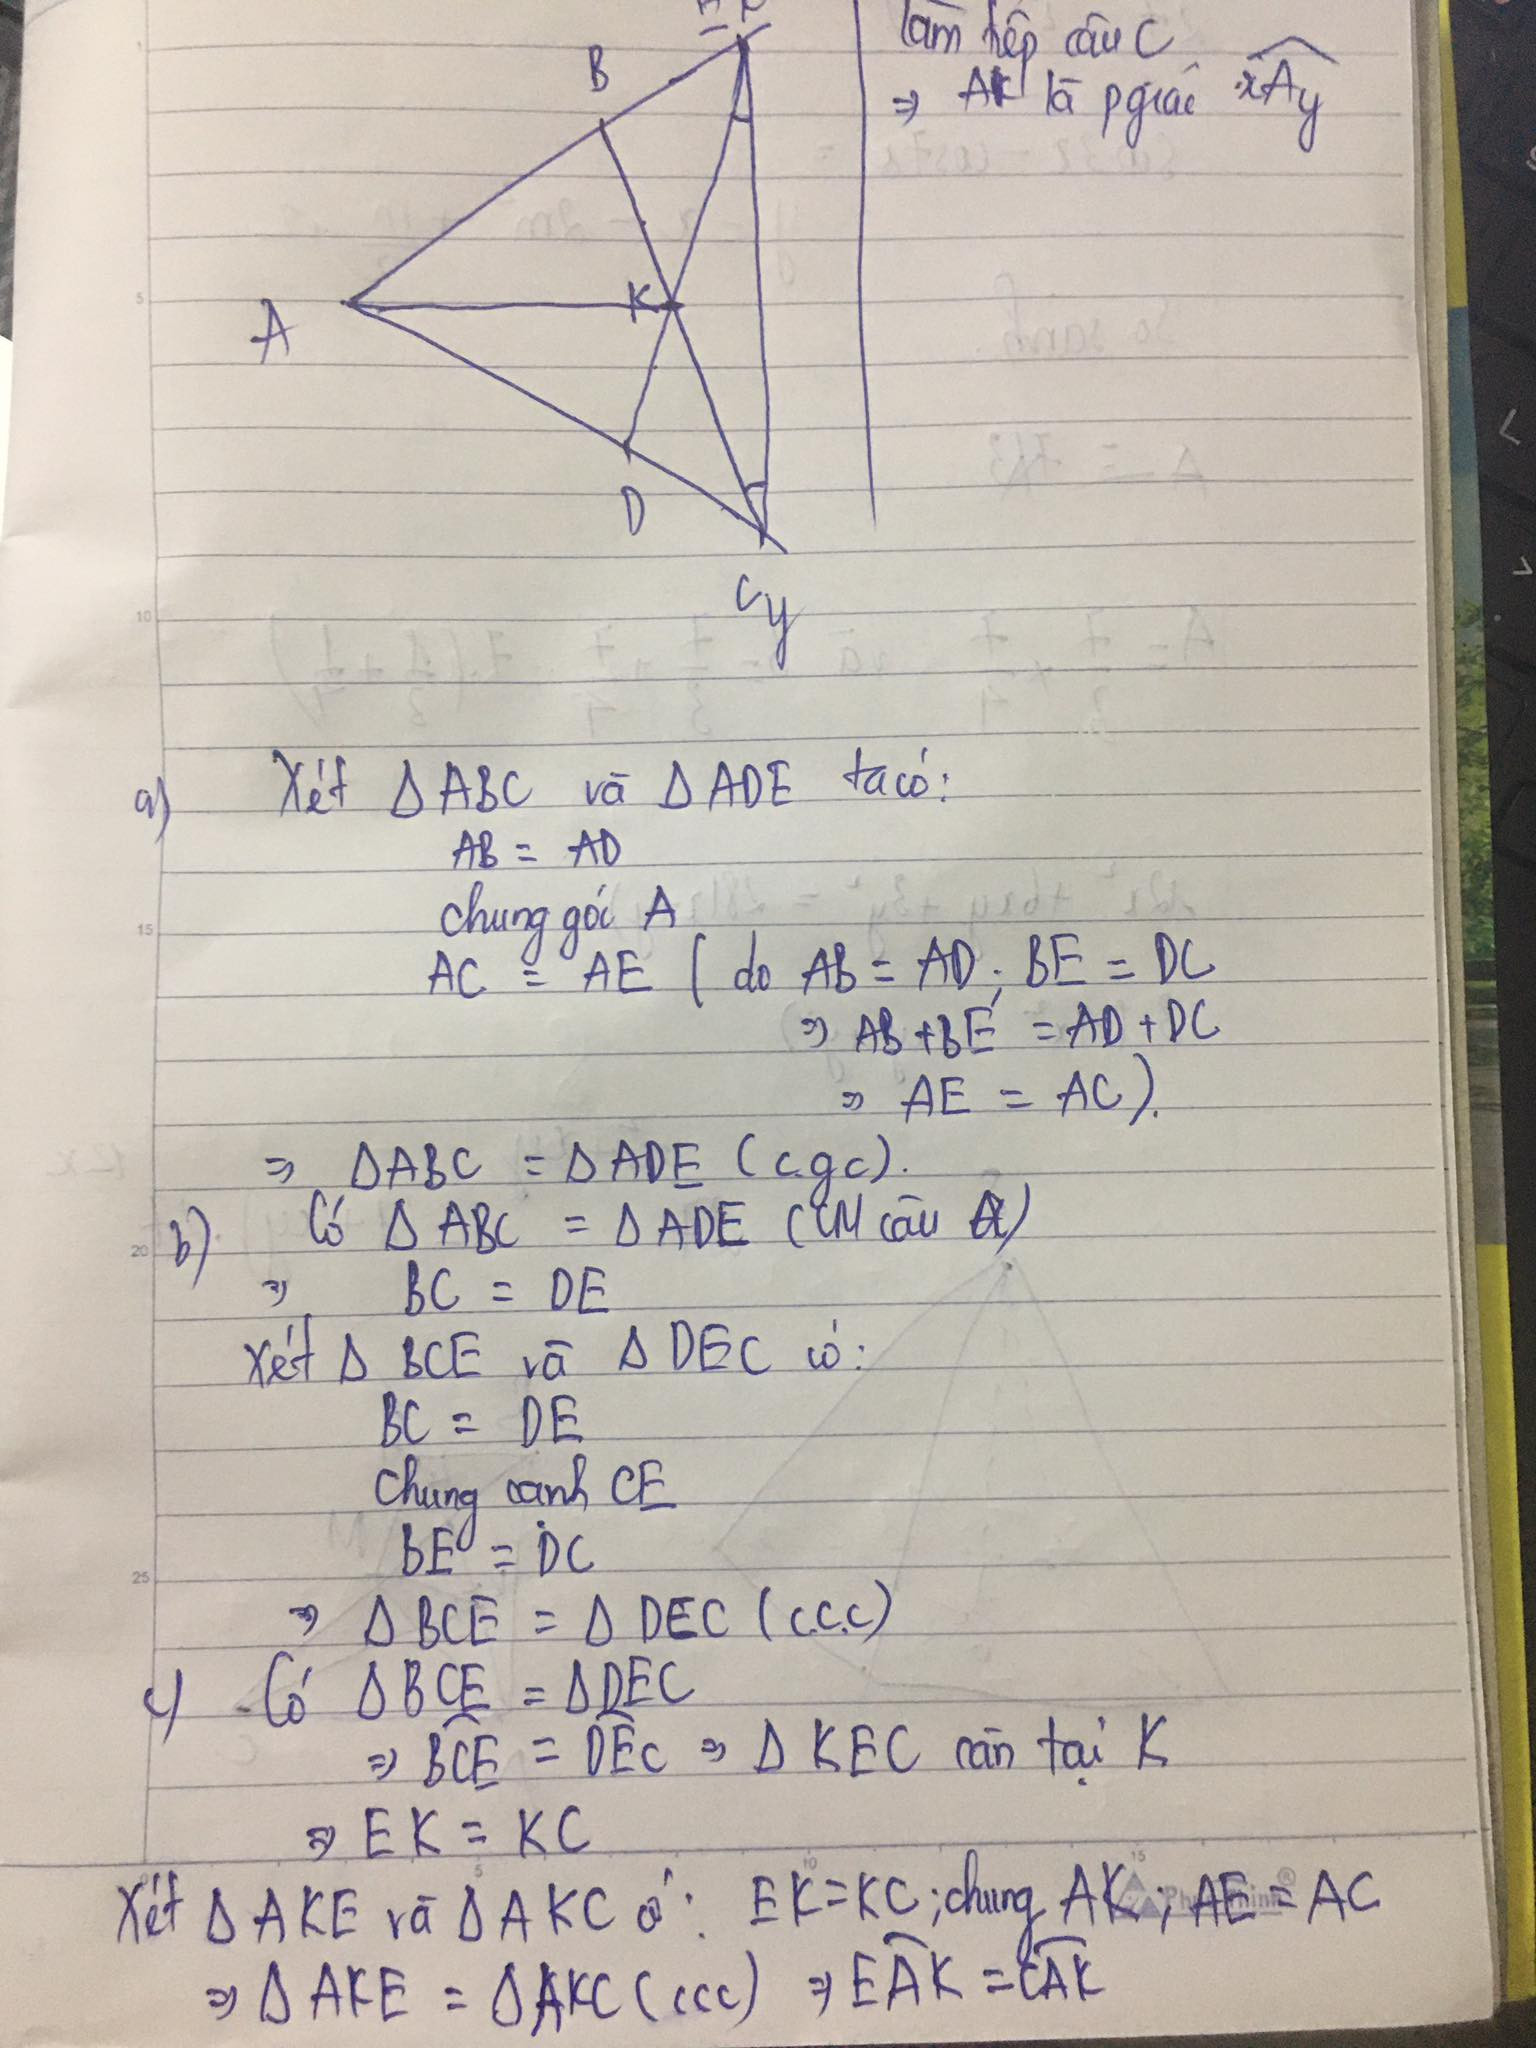 E x
B
A
K
D
C y
làm tiếp câu C
⇒ AK là pgiác xAy
a) Xét Δ ABC và Δ ADE ta có:
AB = AD
chung góc A
AC = AE ( do AB = AD ; BE = DC
⇒ AB + BE = AD + DC
⇒ AE = AC ).
⇒ Δ ABC = Δ ADE ( c.g.c ).
b) Có Δ ABC = Δ ADE ( CM câu a )
⇒ BC = DE
Xét Δ BCE và Δ DEC có:
BC = DE
Chung cạnh CE
BE = DC
⇒ Δ BCE = Δ DEC ( c.c.c )
c) Có Δ BCE = Δ DEC
⇒ BCE = DEC ⇒ Δ KEC cân tại K
⇒ EK = KC
Xét Δ AKE và Δ AKC có: EK = KC ; chung AK ; AE = AC
⇒ Δ AKE = Δ AKC ( ccc ) ⇒ EAK = CAK
1
5
10
15
20
25
5
10
15